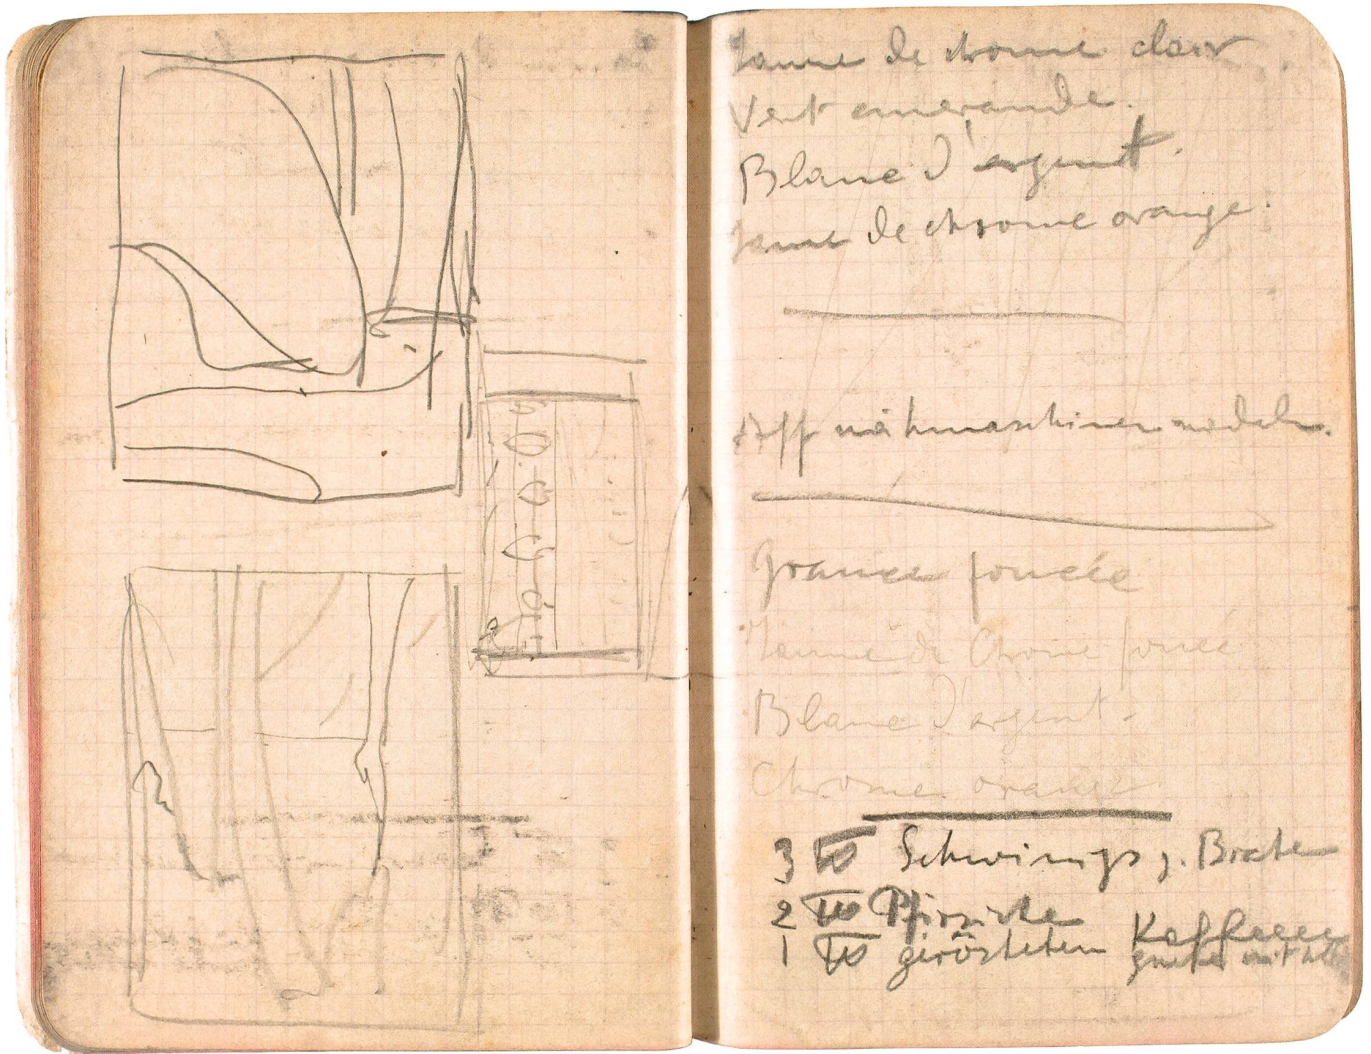 Jaune de chrome clair.
Vert emeraude.
Blanc d'argent.
Jaune de chrome orange.
nähmaschinen
Grance foncée
Jaune de Chrome foncé
Blanc d'argent.
Chrome orange.
3 ℔ Braten
2 ℔ Pfirsiche
1 ℔ gerösteten Kaffeee